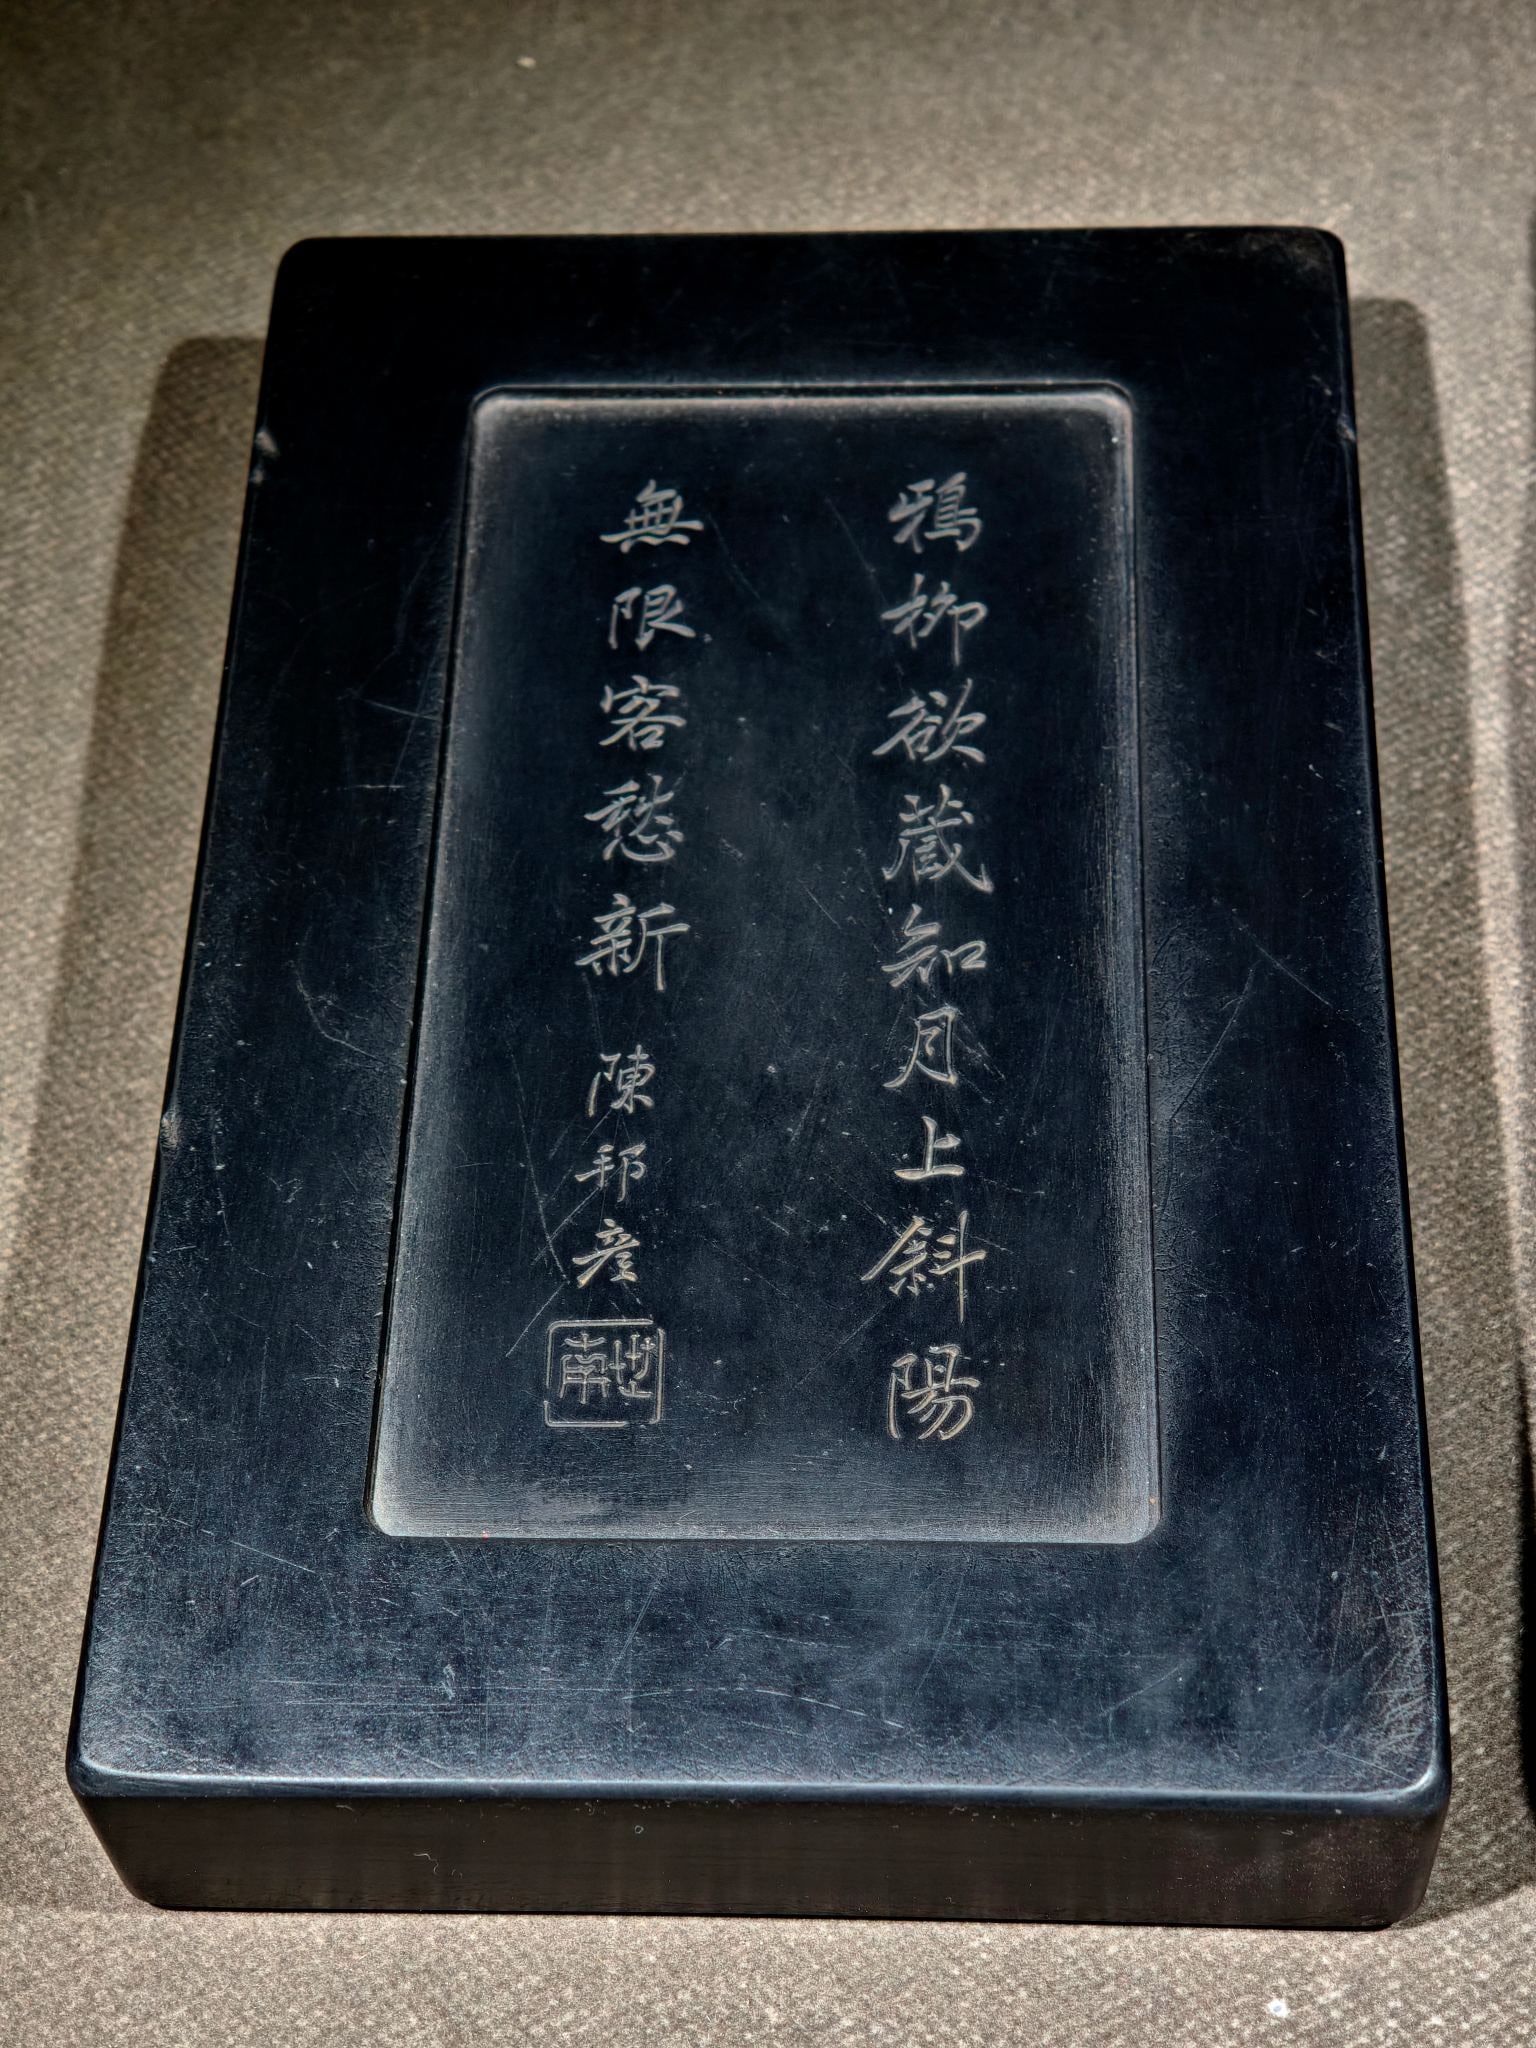 鴉栁欲蔵知月上斜陽
無限客愁新 陳邦彦
世南